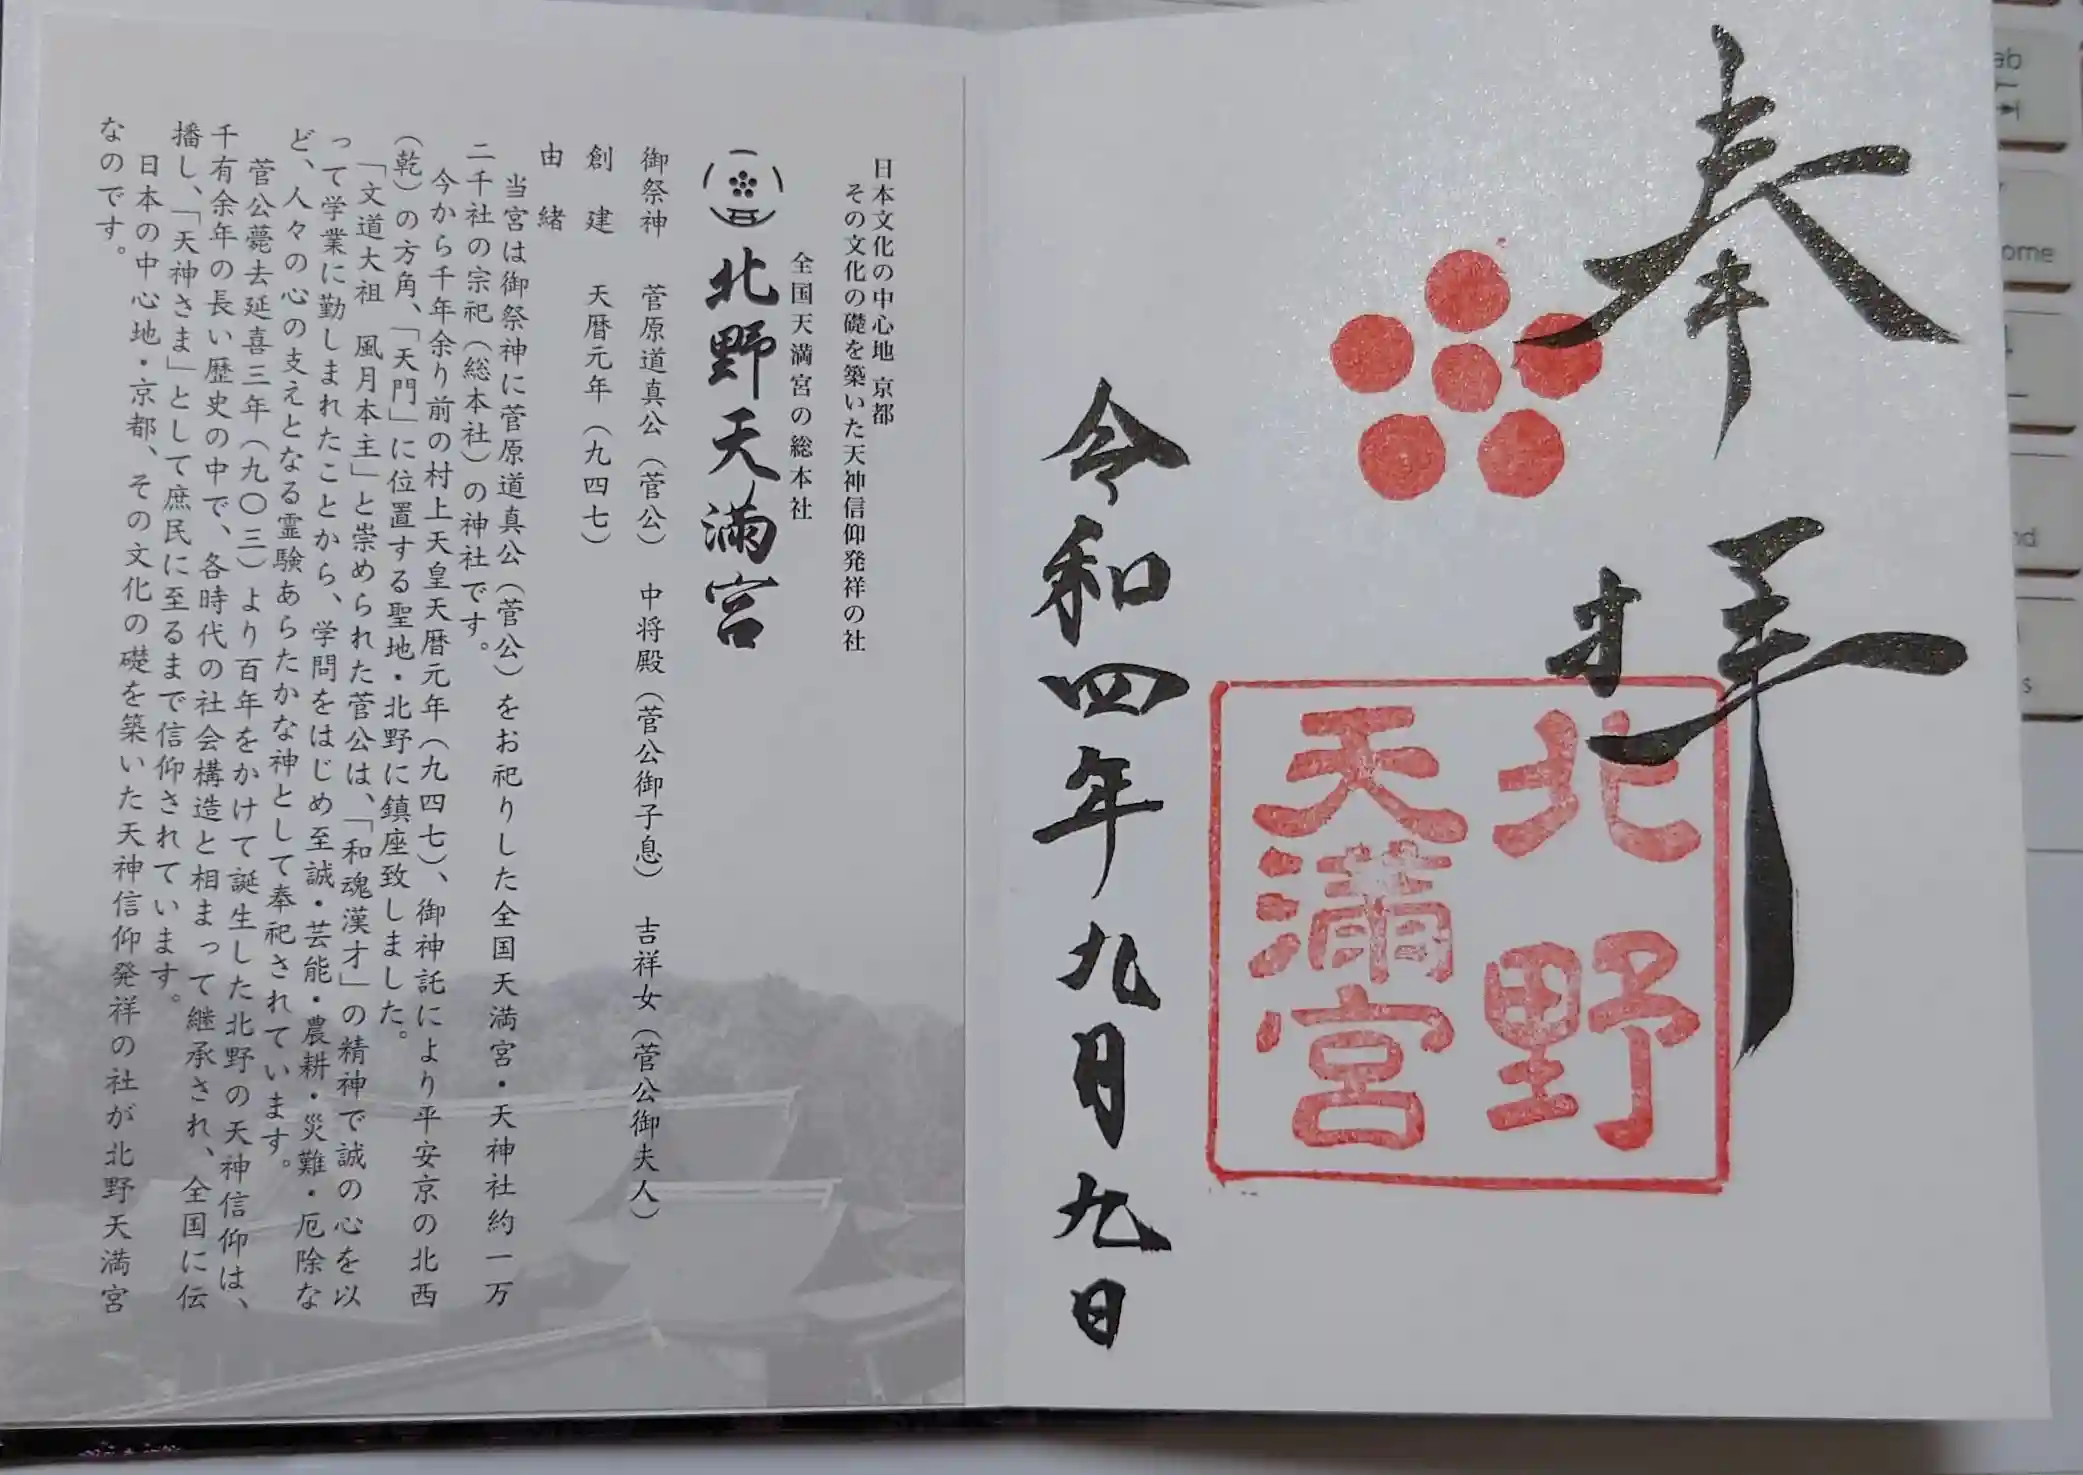 奉拝
北野
天満宮
令和四年九月九日
日本文化の中心地 京都
その文化の礎を築いた天神信仰発祥の社
全国天満宮の総本社
北野天満宮
御祭神 菅原道真公（菅公） 中将殿（菅公御子息） 吉祥女（菅公御夫人）
創建 天暦元年（九四七）
由緒
当宮は御祭神に菅原道真公（菅公）をお祀りした全国天満宮・天神社約一万
二千社の宗祀（総本社）の神社です。
今から千年余り前の村上天皇天暦元年（九四七）、御神託により平安京の北西
（乾）の方角、「天門」に位置する聖地・北野に鎮座致しました。
「文道大祖 風月本主」と崇められた菅公は、「和魂漢才」の精神で誠の心を以
って学業に勤しまれたことから、学問をはじめ至誠・芸能・農耕・災難・厄除な
ど、人々の心の支えとなる霊験あらたかな神として奉祀されています。
菅公薨去延喜三年（九〇三）より百年をかけて誕生した北野の天神信仰は、
千有余年の長い歴史の中で、各時代の社会構造と相まって継承され、全国に伝
播し、「天神さま」として庶民に至るまで信仰されています。
日本の中心地・京都、その文化の礎を築いた天神信仰発祥の社が北野天満宮
なのです。